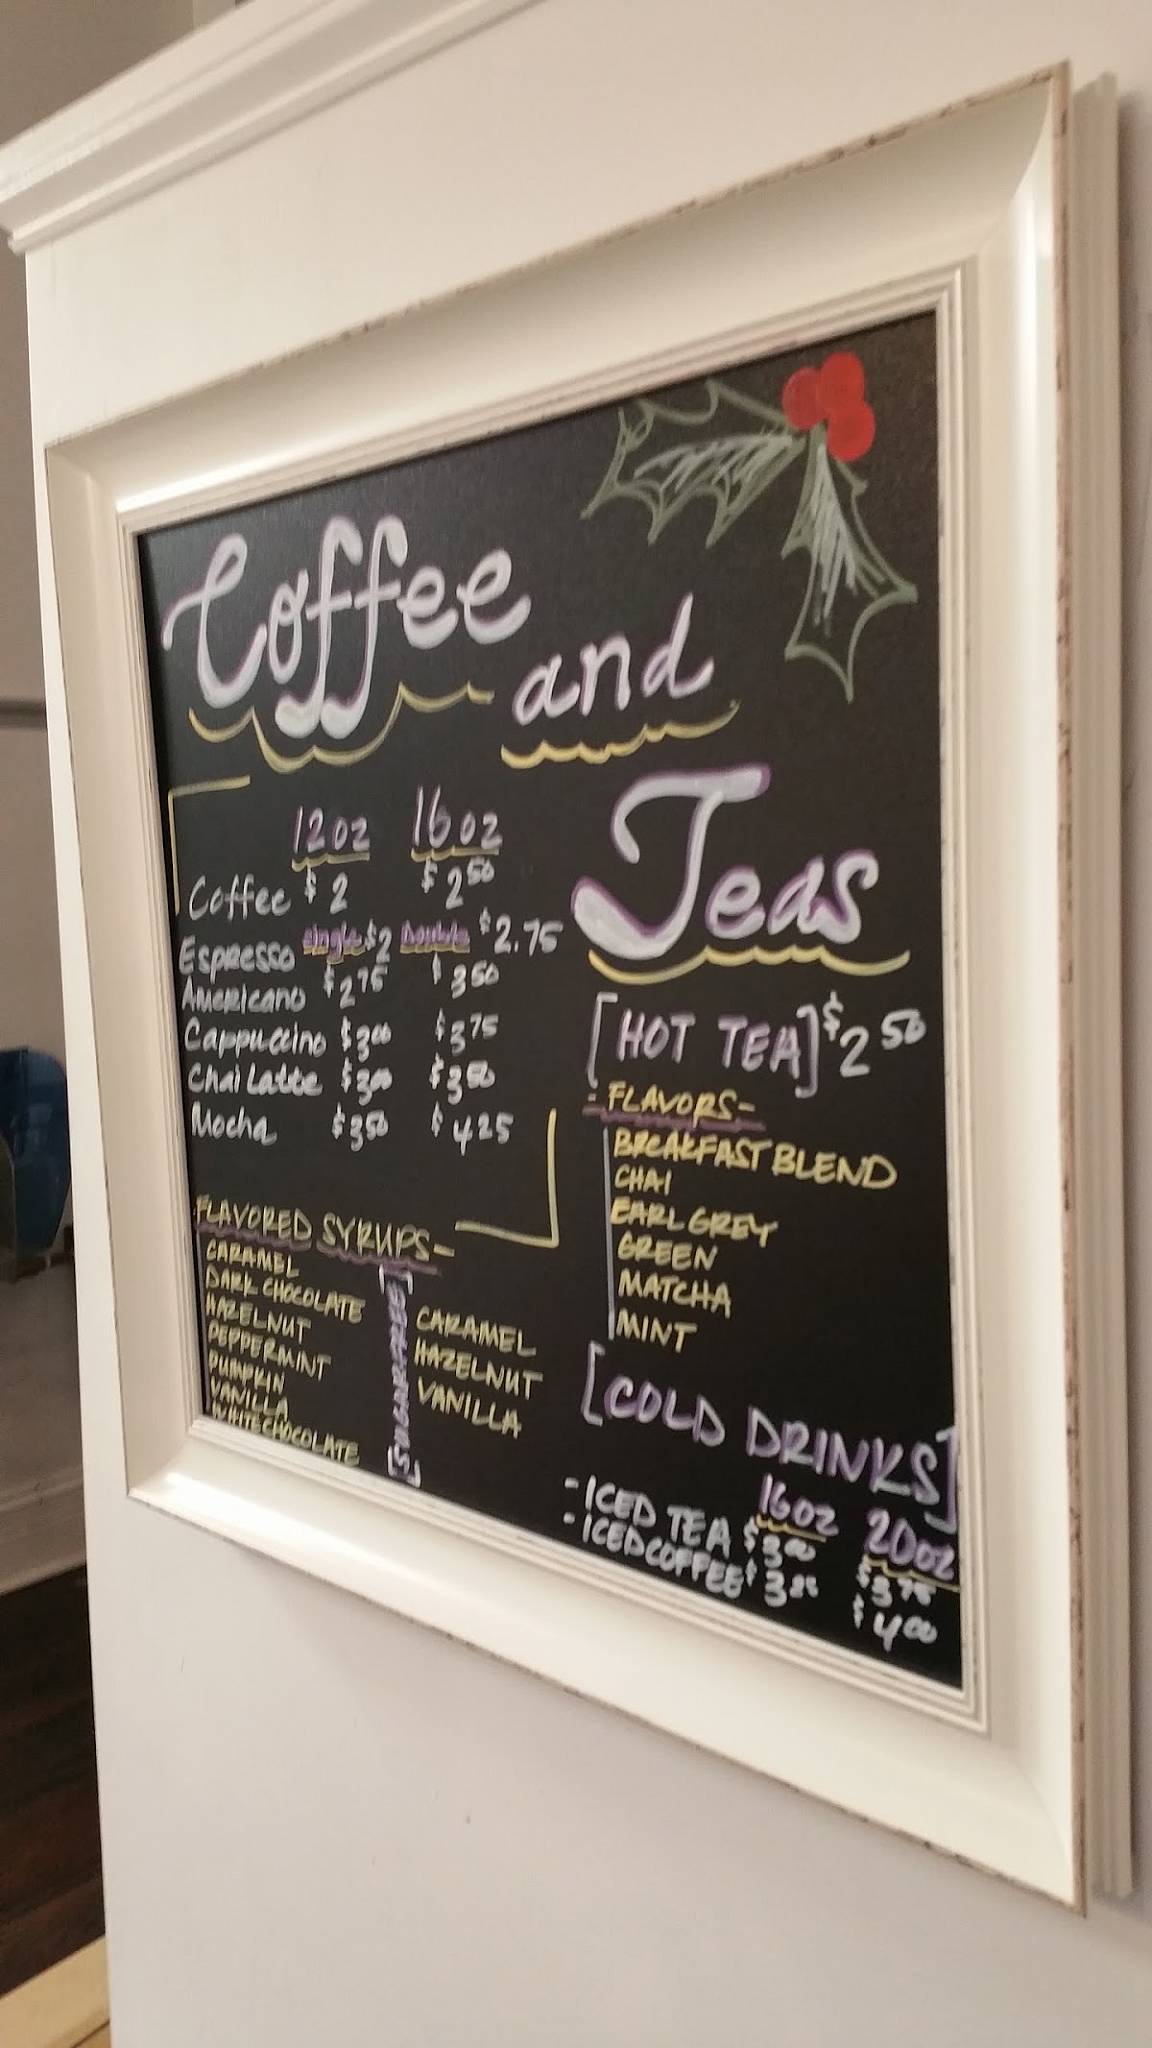 Coffee
and
Teas
12oz 16oz
Coffee $2 $2 50
Espresso single $2 Double $2.75
Americano $2 75 $3 50
Cappuccino $3 00 $3 75
Chai Latte $3 00 $3 50
Mocha $3 50 $4 25
FLAVORED SYRUPS-
CARAMEL
DARK CHOCOLATE
HAZELNUT
PEPPERMINT
PUMPKIN
VANILLA
WHITE CHOCOLATE
[SUGAR FREE]
CARAMEL
HAZELNUT
VANILLA
[HOT TEA] $2 50
-FLAVORS-
BREAKFAST BLEND
CHAI
EARL GREY
GREEN
MATCHA
MINT
[COLD DRINKS]
16oz 20oz
-ICED TEA $3 00 $3 75
-ICED COFFEE $4 00